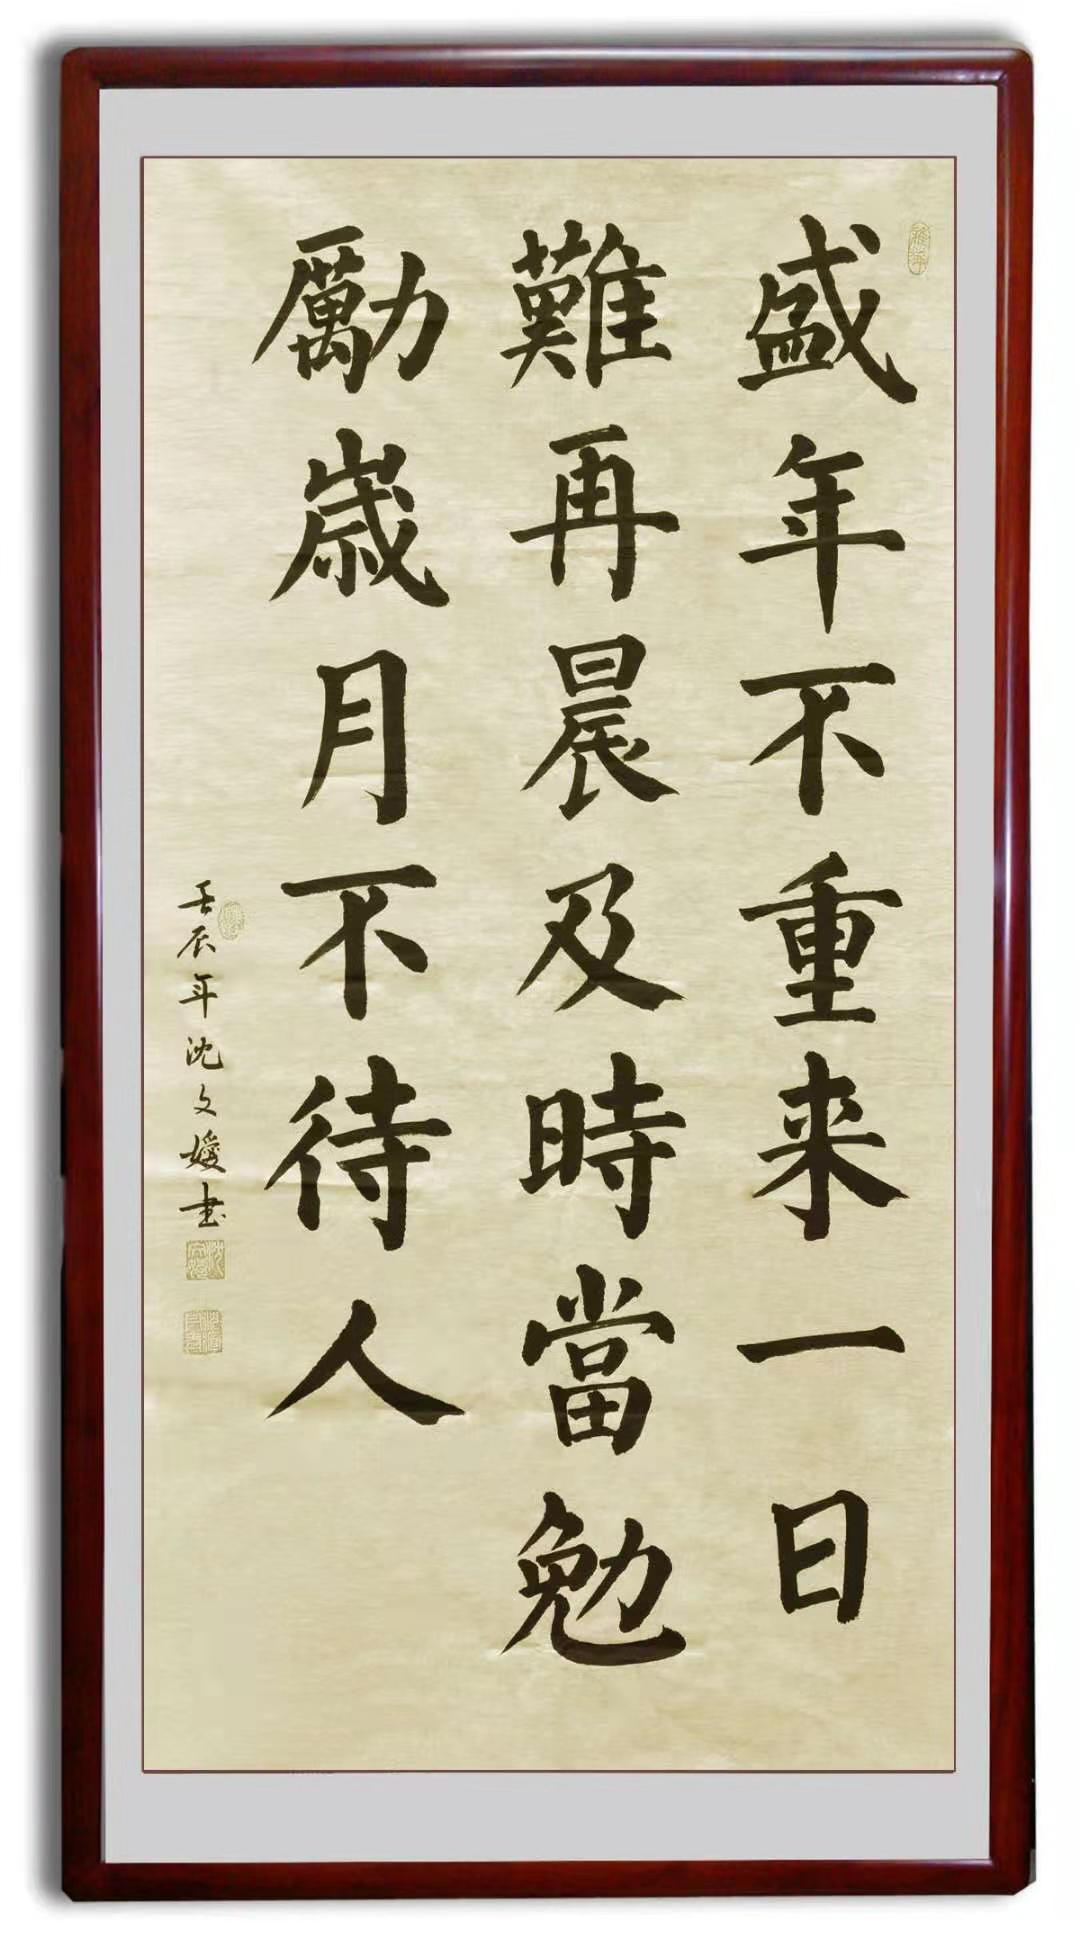 盛年不重来一日
難再晨及時當勉
勵歳月不待人
壬辰年沈文嫒书